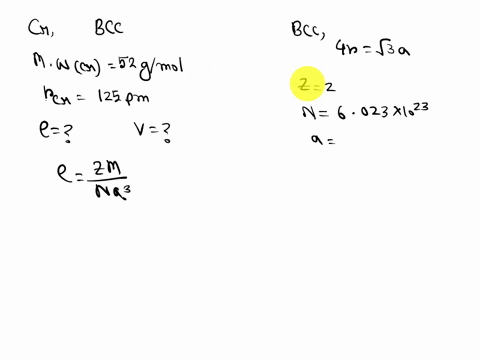 Cr, BCC
M.W(Cr) = 52 g/mol
rCr = 125 pm
ρ = ? V = ?
ρ = ZM / Na³
BCC,
4r = √3 a
Z = 2
N = 6.023 × 10²³
a =